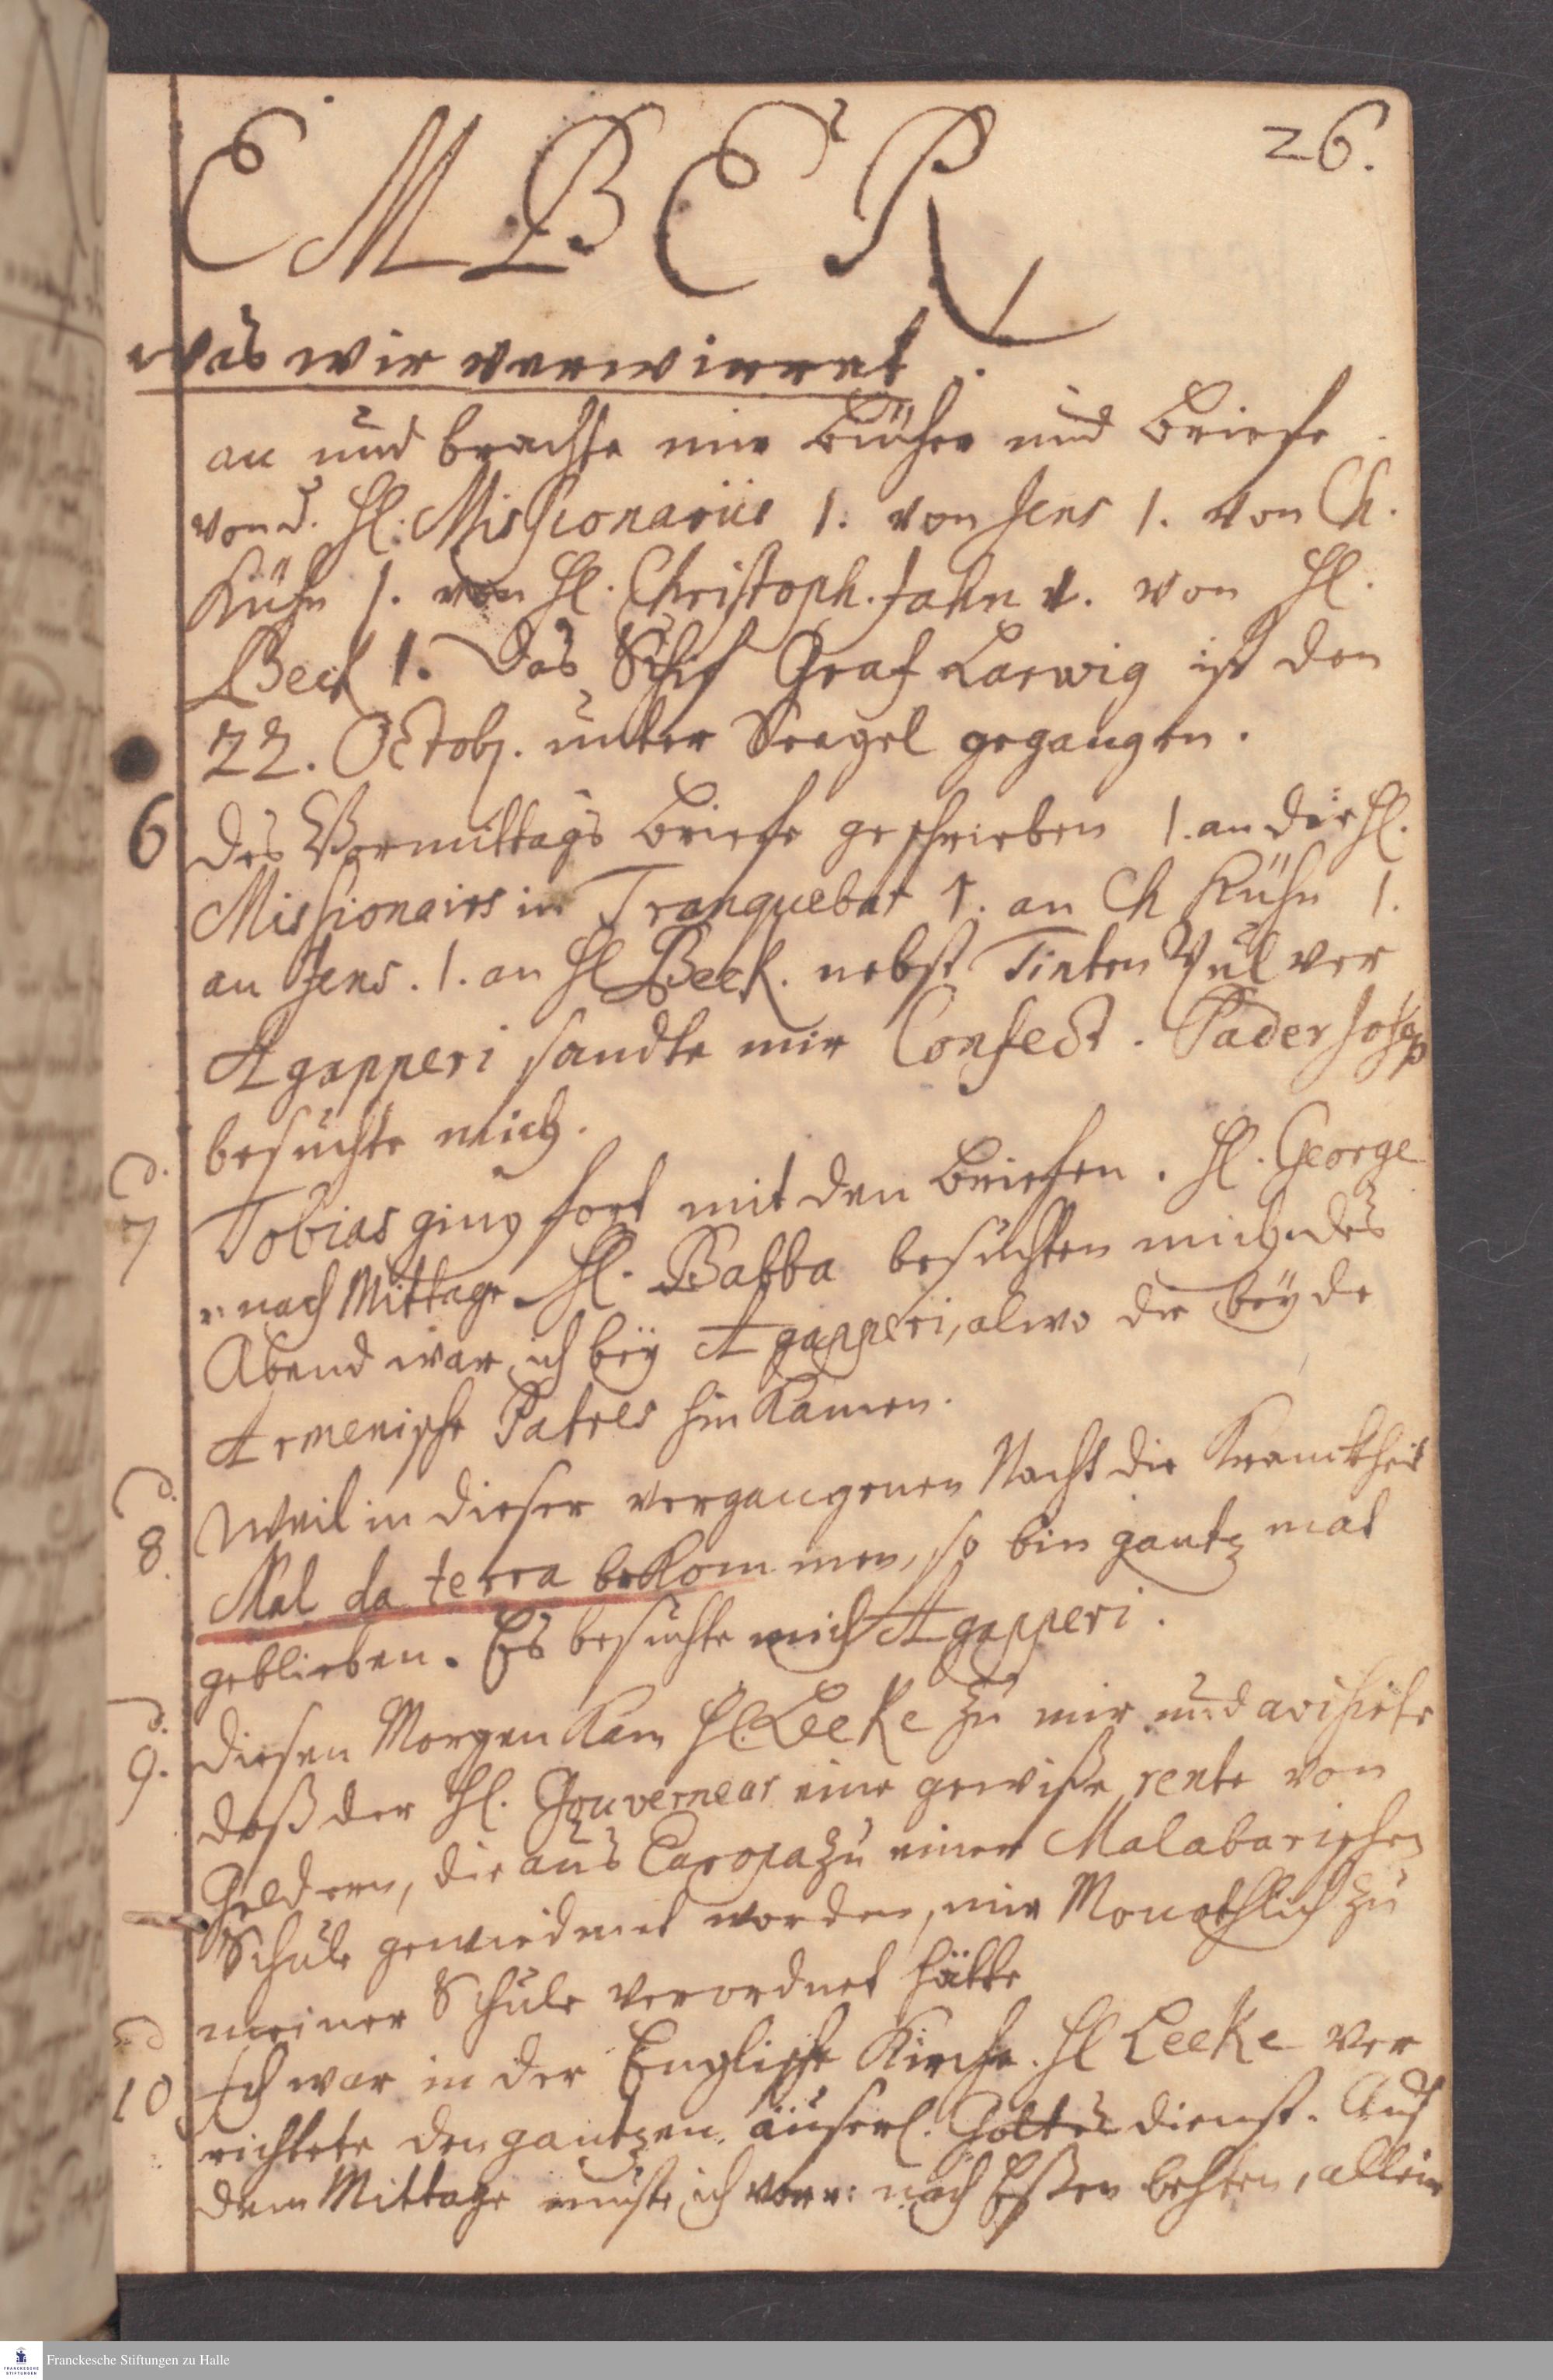 26.
EMBER
was wir verwirret.
an und brachte mir Bücher und Briefe
von d. Hl: Missionariis 1. von Jens 1. von Ch.
Kühn 1. von Hl. Christoph. Jahn 1. von Hl.
Beck 1. Das Schif Graf Larwig ist den
22. Octobr. unter Seegel gegangen.
6 Des Vormittags Briefe geschrieben 1. an die Hl.
Missionairs in Tranquebar 1. an Ch Kühn 1.
an Jens. 1. an Hl Beck. nebst Tinten Pulver
Agapperi sandte mir Confect. Pader Joseph
besuchte mich.
d. 7 Tobias ging fort mit den Briefen. Hl. George
u: nach Mittage Hl. Babba besuchten mich. des
Abend war ich bey Agapperi, alwo die beyde
Armenische Patres hin kamen.
d. 8. Weil in dieser vergangenen Nacht die Kranckheit
Mal da terra bekommen, so bin gantz mat
geblieben. Es besuchte mich Agapperi.
d. 9. diesen Morgen kam Hl. Leeke zu mir und avisirte
daß der Hl. Gouverneur eine gewisse rente von
Geldern, die aus Europa zu einer Malabarischen
Schule gewiedmet worden, mir Monathlich zu
meiner Schule verordnet hätte
d 10 Ich war in der Englische Kirche. Hl Leeke ver
richtete den gantzen äuserl. Gottesdienst. Auf
dem Mittage muste ich vor u: nach Essen bethen, allein
Franckesche Stiftungen zu Halle